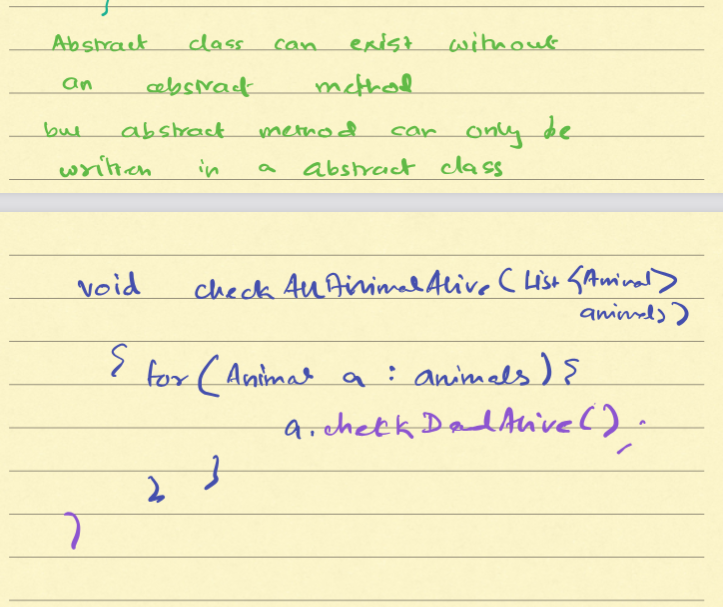 }
Abstract class can exist without
an abstract method
but abstract method can only be
written in a abstract class
void checkAllAnimalAlive(List<Animal>
animals)
{ for(Animal a : animals){
a.checkDeadAlive();
} }
}